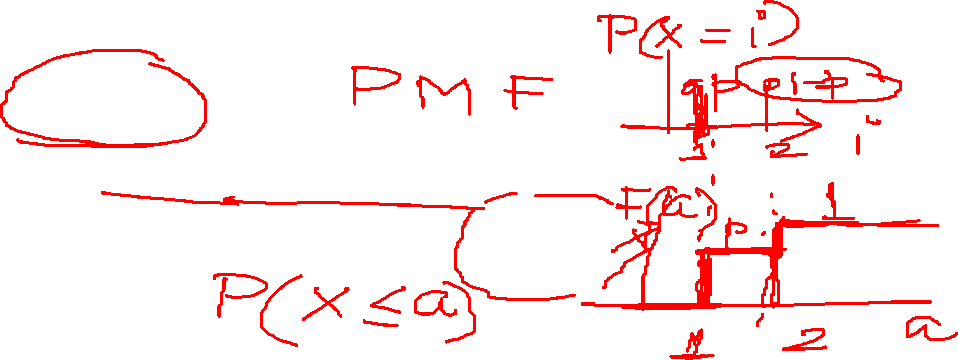 P(x = i)
PMF
p 1-p
1 2 i
F(a)
p 1
P(x ≤ a)
1 2 a